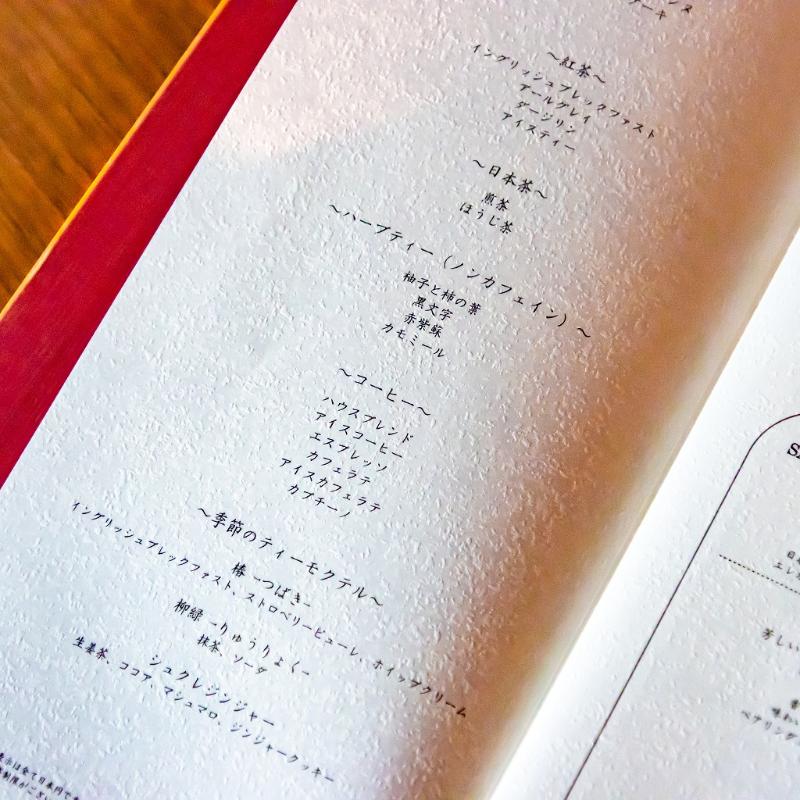 ンス
ケーキ
～紅茶～
イングリッシュブレックファスト
アールグレイ
ダージリン
アイスティー
～日本茶～
煎茶
ほうじ茶
～ハーブティー（ノンカフェイン）～
柚子と柿の葉
黒文字
赤紫蘇
カモミール
～コーヒー～
ハウスブレンド
アイスコーヒー
エスプレッソ
カフェラテ
アイスカフェラテ
カプチーノ
～季節のティーモクテル～
椿 -つばき-
イングリッシュブレックファスト、ストロベリーピューレ、ホイップクリーム
柳緑 -りゅうりょく-
抹茶、ソーダ
シュクレジンジャー
生姜茶、ココア、マシュマロ、ジンジャークッキー
表示は全て日本円で
制限がござい
日本
エレ
芳しい
味わい
ペアリング